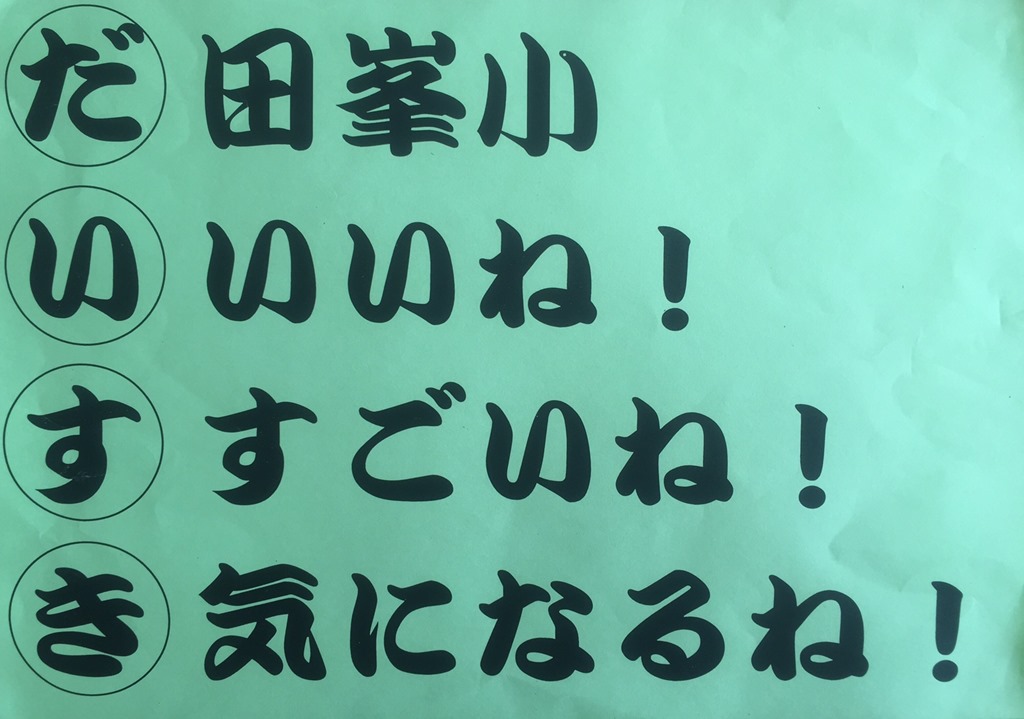 だ 田峯小
い いいね！
す すごいね！
き 気になるね！